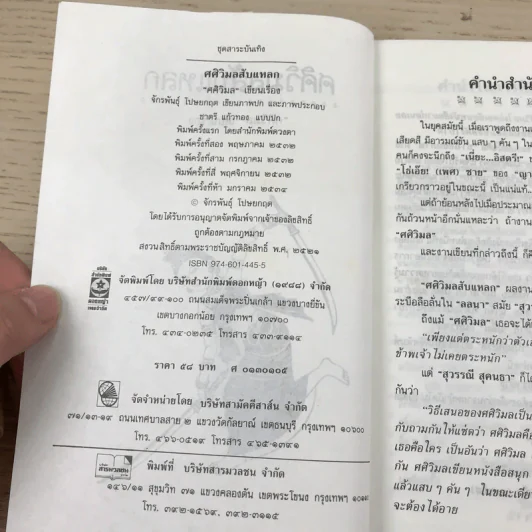 ชุดสาระบันเทิง
ศศิวิมลสับแหลก
"ศศิวิมล" เขียนเรื่อง
จักรพันธุ์ โปษยกฤต เขียนภาพปก และภาพประกอบ
ชาตรี แก้วทอง แบบปก
พิมพ์ครั้งแรก โดยสำนักพิมพ์ดวงตา
พิมพ์ครั้งที่สอง พฤษภาคม ๒๕๓๒
พิมพ์ครั้งที่สาม กรกฎาคม ๒๕๓๒
พิมพ์ครั้งที่สี่ พฤศจิกายน ๒๕๓๒
พิมพ์ครั้งที่ห้า มกราคม ๒๕๓๔
© จักรพันธุ์ โปษยกฤต
โดยได้รับการอนุญาตจัดพิมพ์จากเจ้าของลิขสิทธิ์
ถูกต้องตามกฎหมาย
สงวนสิทธิ์ตามพระราชบัญญัติลิขสิทธิ์ พ.ศ. ๒๕๒๑
ISBN 974-601-445-5
จัดพิมพ์โดย บริษัทสำนักพิมพ์ดอกหญ้า (๑๙๘๘) จำกัด
๔๕๗/๔๙-๑๐๐ ถนนสมเด็จพระปิ่นเกล้า แขวงบางยี่ขัน
เขตบางกอกน้อย กรุงเทพฯ ๑๐๗๐๐
โทร. ๔๓๔-๐๒๓๕ โทรสาร ๔๓๓-๙๑๑๔
ราคา ๕๘ บาท ศ ๐๑๓๐๑๐๕
จัดจำหน่ายโดย บริษัทสามัคคีสาส์น จำกัด
๗๑/๑๓-๑๙ ถนนเทศบาลสาย ๒ แขวงวัดกัลยาณ์ เขตธนบุรี กรุงเทพฯ ๑๐๖๐๐
โทร. ๔๖๖-๐๕๑๙ โทรสาร ๔๖๕-๑๓๙๑
พิมพ์ที่ บริษัทสารมวลชน จำกัด
๑๔๖/๑๑ สุขุมวิท ๗๑ แขวงคลองตัน เขตพระโขนง กรุงเทพฯ
โทร. ๓๙๒-๑๕๖๙, ๓๙๒-๓๑๑๕
คำนำสำนั
ในยุคสมัยนี้ เมื่อเราพูดถึงงาน
เสียดสี มีอารมณ์ขัน แสบ ๆ คัน ๆ ใน
คนก็คงจะนึกถึง "เนี่ยะ...อิสตรี!"
"โธ่เอ๊ย! (เพศ) ชาย" ของ "ญา
เกรียวกราวอยู่ในขณะนี้ เป็นแน่แท้..
แต่ถ้าย้อนหลังไปเมื่อประมาณ
กันถ้วนหน้าอีกนั่นแหละว่า ถ้างาน
"ศศิวิมล"
และงานเขียนที่กล่าวถึงนี้ ก็คื
"ศศิวิมลสับแหลก" ผลงาน
ระบือลือลั่นใน "ลลนา" สมัย "สุว
ถึงแม้ "ศศิวิมล" เธอจะได้
"เพียงแต่ตระหนักว่าตัวเ
ข้าพเจ้าไม่เคยตระหนัก"
แต่ "สุวรรณี สุคนธา" ก็ได้
กันว่า
"วิธีเสนอของศศิวิมลเป็น
กับถามกันให้แซ่ดว่า ศศิวิมลคือ
เธอคือใคร เป็นอันว่า ศศิวิมล
กัน ศศิวิมลเขียนหนังสือสนุก
แล้วแสบ ๆ คัน ๆ ในขณะเดีย
จะต้องได้อาย